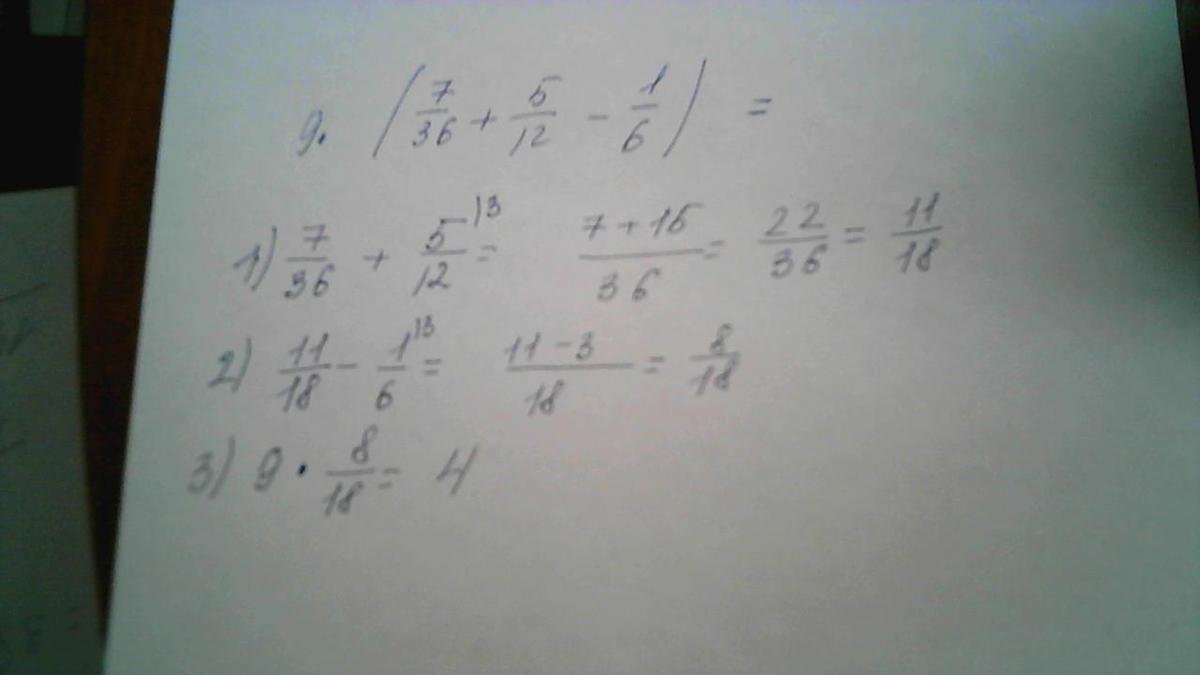 9. (7/36 + 5/12 - 1/6) =
1) 7/36 + 5/12 |3 = 7+15/36 = 22/36 = 11/18
2) 11/18 - 1/6 |3 = 11-3/18 = 8/18
3) 9 · 8/18 = 4